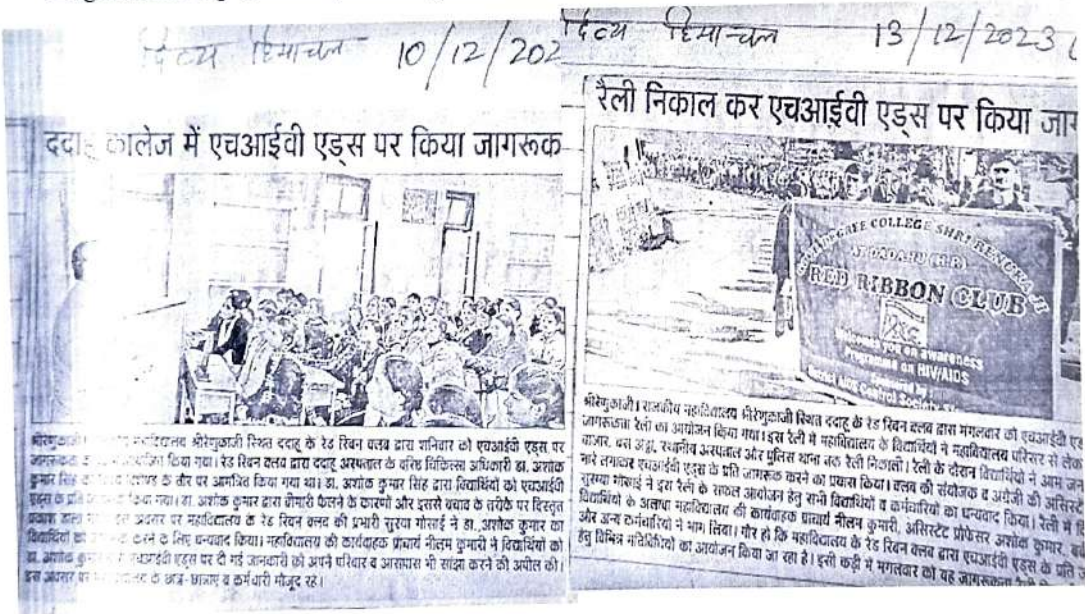 दिव्य हिमाचल 10/12/202
ददाहू कालेज में एचआईवी एड्स पर किया जागरूक
श्रीरेणुकाजी। महाविद्यालय श्रीरेणुकाजी स्थित ददाहू के रेड रिबन क्लब द्वारा शनिवार को एचआईवी एड्स पर
जागरूकता किया गया। रेड रिबन क्लब द्वारा ददाहू अस्पताल के वरिष्ठ चिकित्सा अधिकारी डा. अशोक
कुमार सिंह के तौर पर आमंत्रित किया गया था। डा. अशोक कुमार सिंह द्वारा विद्यार्थियों को एचआईवी
एड्स के प्रति किया गया। डा. अशोक कुमार द्वारा बीमारी फैलने के कारणों और इससे बचाव के तरीके पर विस्तृत
प्रकाश डाला अवसर पर महाविद्यालय के रेड रिबन क्लब की प्रभारी सुरया गोसाई ने डा. अशोक कुमार का
विद्यार्थियों को करने के लिए धन्यवाद किया। महाविद्यालय की कार्यवाहक प्राचार्य नीलम कुमारी ने विद्यार्थियों को
डा. अशोक कुमार एचआईवी एड्स पर दी गई जानकारी को अपने परिवार व आसपास भी सांझा करने की अपील की।
इस अवसर पर के छात्र-छात्राएं व कर्मचारी मौजूद रहे।
दिव्य हिमाचल 13/12/2023
रैली निकाल कर एचआईवी एड्स पर किया जाग
DEGREE COLLEGE SHRI RENUKA JI
AT DADAHU (H.P.)
RED RIBBON CLUB
Welcomes you on awareness
Programme on HIV/AIDS
Sponsored by
District AIDS Control Society
श्रीरेणुकाजी। राजकीय महाविद्यालय श्रीरेणुकाजी स्थित ददाहू के रेड रिबन क्लब द्वारा मंगलवार को एचआईवी
जागरूकता रैली का आयोजन किया गया। इस रैली में महाविद्यालय के विद्यार्थियों ने महाविद्यालय परिसर से लेकर
बाजार, बस अड्डा, स्थानीय अस्पताल और पुलिस थाना तक रैली निकाली। रैली के दौरान विद्यार्थियों ने आम जन
नारे लगाकर एचआईवी एड्स के प्रति जागरूक करने का प्रयास किया। क्लब की संयोजक व अंग्रेजी की असिस्टें
सुरया गोसाई ने इस रैली के सफल आयोजन हेतु सभी विद्यार्थियों व कर्मचारियों का धन्यवाद किया। रैली में
विद्यार्थियों के अलावा महाविद्यालय की कार्यवाहक प्राचार्य नीलम कुमारी, असिस्टेंट प्रोफेसर अशोक कुमार,
और अन्य कर्मचारियों ने भाग लिया। गौर हो कि महाविद्यालय के रेड रिबन क्लब द्वारा एचआईवी एड्स के प्रति
हेतु विभिन्न गतिविधियों का आयोजन किया जा रहा है। इसी कड़ी में मंगलवार को यह जागरूकता रैली